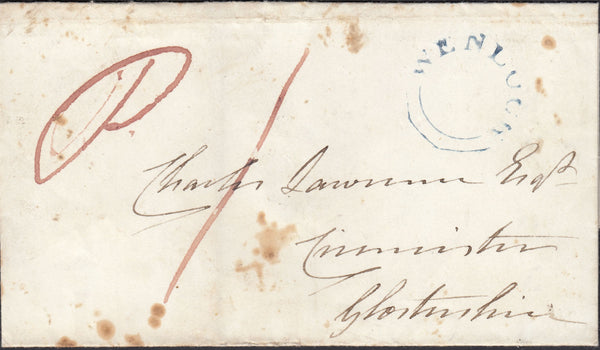 P
1
WENLOCK
Charles Lawrence Esqr
Cirencester
Glostershire